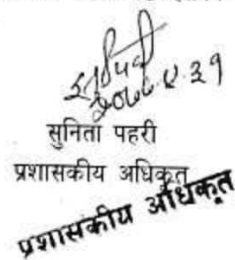 २०७८.९.२१
सुनिता पहरी
प्रशासकीय अधिकृत
प्रशासकीय अधिकृत